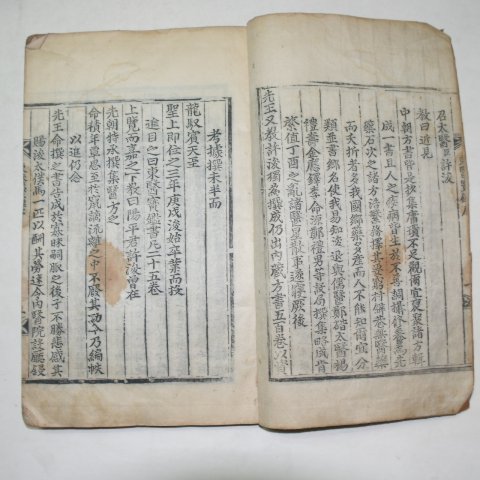 召太醫臣許浚
教曰近見
中朝方書皆是抄集庸瑣不足觀爾宜裒聚諸方輯
成一書且人之疾病皆生於不善調攝修養爲先
藥石次之諸方浩繁務擇其要窮村僻巷無醫藥
而夭折者多我國鄕藥多產而人不能知爾宜分
類並書鄕名使民易知浚退與儒醫鄭碏太醫楊
禮壽金應鐸李命源鄭禮男等設局撰集略成肯
綮值丁酉之亂諸醫星散事遂寢厥後
先王又教許浚獨爲撰成仍出內藏方書五百卷以資
考據撰未半而
龍馭賓天至
聖上即位之三年庚戌浚始卒業而投
進目之曰東醫寶鑑書凡二十五卷
上覽而嘉之下教曰陽平君許浚曾在
先朝特承撰集醫方之
命積年覃思至於竄謫流離之中不廢其功今乃編帙
以進仍念
先王命撰之書告成於寡昧嗣服之後予不勝悲感其
賜浚太僕馬一匹以酬其勞速令內醫院設廳鋟